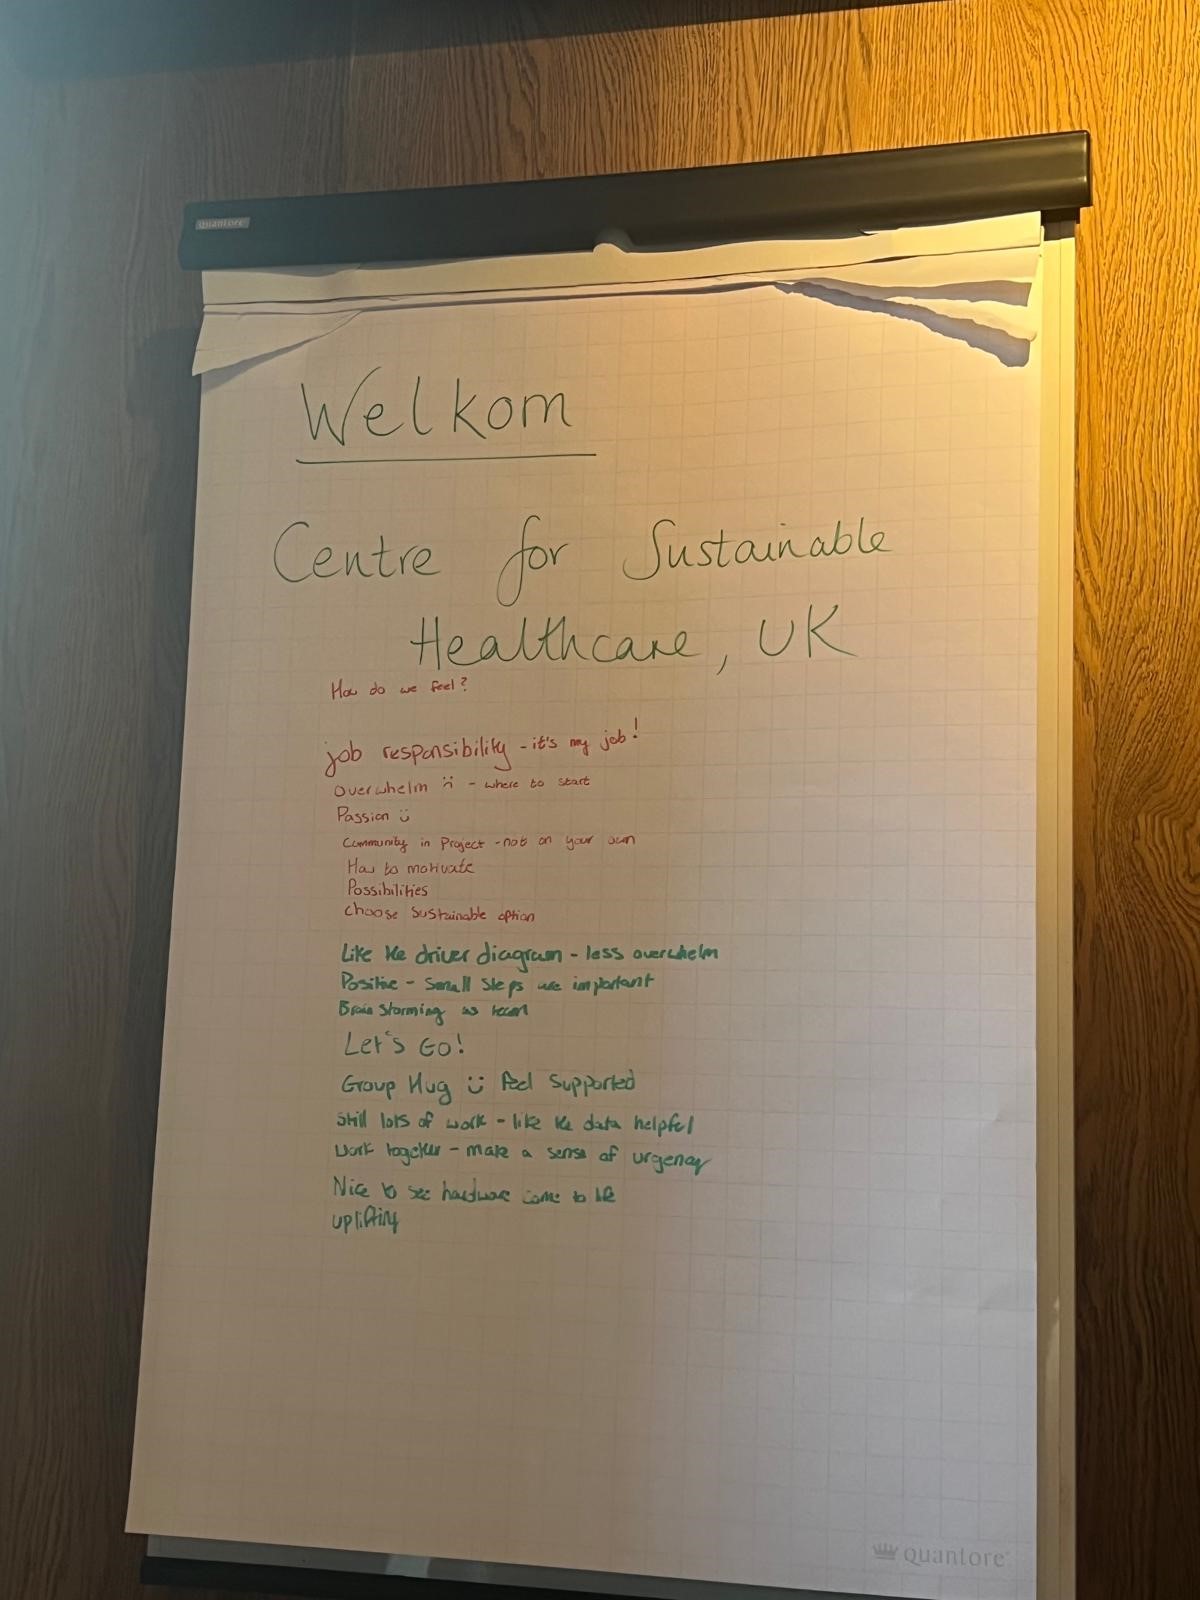 quantore
Welkom
Centre for Sustainable
Healthcare, UK
How do we feel?
job responsibility - it's my job!
overwhelm :( - where to start
Passion :)
Community in Project - not on your own
How to motivate
Possibilities
choose sustainable option
Like the driver diagram - less overwhelm
Positive - small steps are important
Brain storming as team
Let's Go!
Group Hug :) feel supported
Still lots of work - like the data helpful
Work together - make a sense of urgency
Nice to see hardware come to life
uplifting
quantore